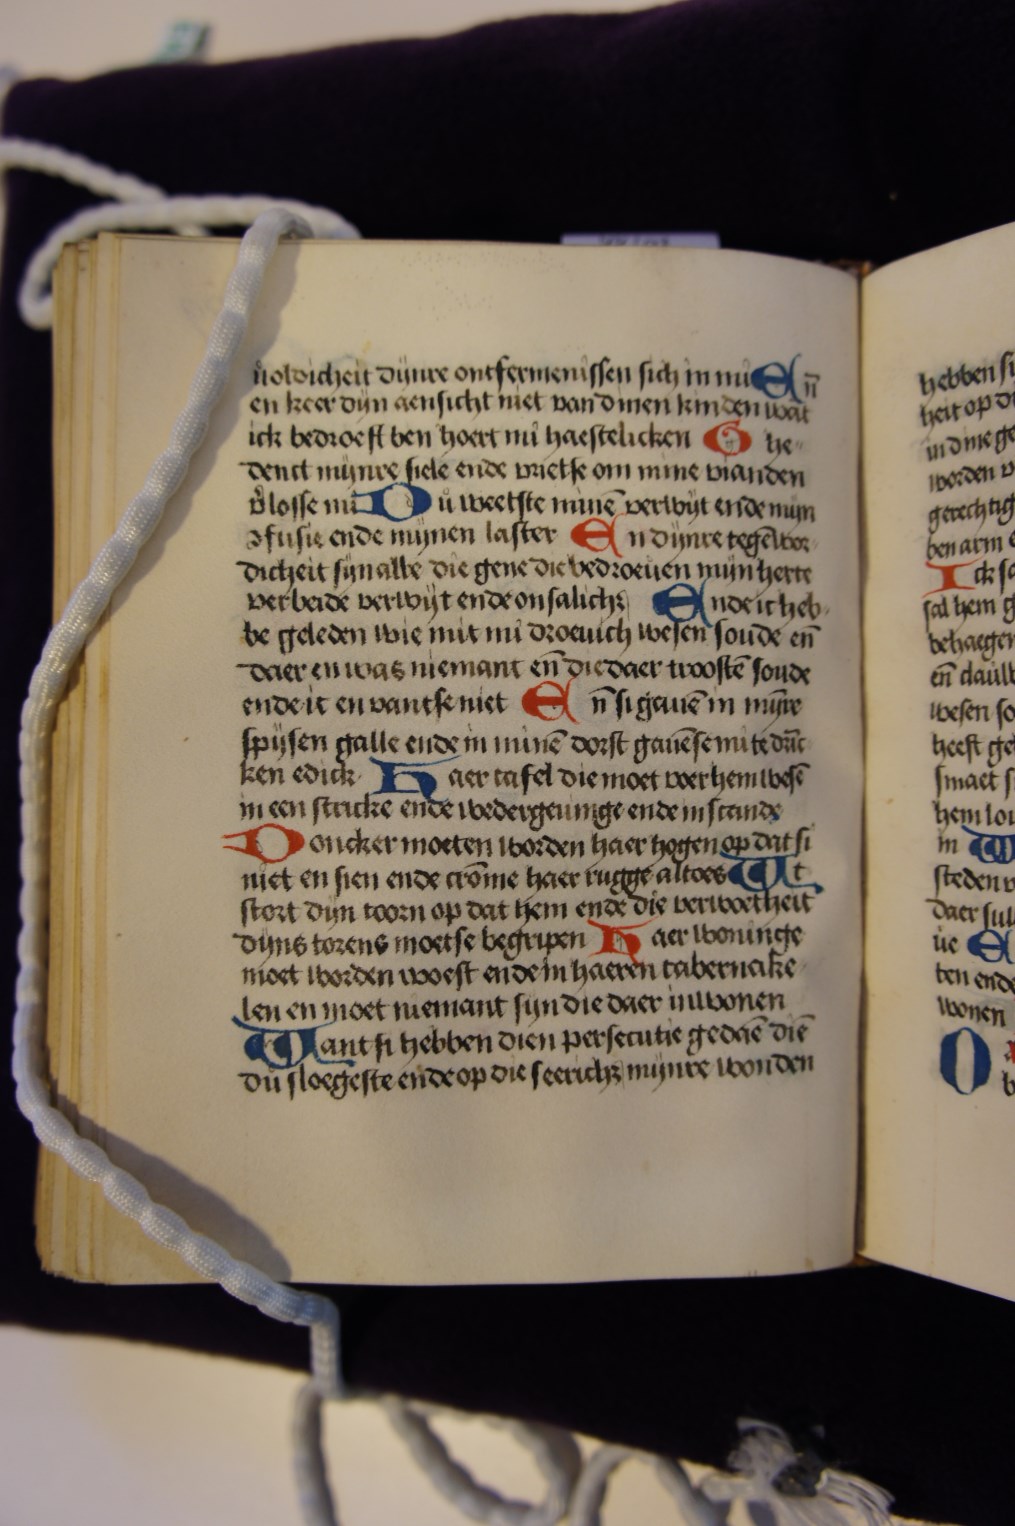 uoldicheit dijnre ontfermenissen sich in mi En̄
en keer dijn aensicht niet van dinen kinden want
ick bedroeft ben hoert mi haestelicken Ghe
denct mijnre siele ende vrietse om mine vianden
v̾losse mi Du weetste minē verwijt ende mijn
ꝯfusie ende mijnen laster En dijnre tegēwor
dicheit sijn alle die gene die bedroeuen mijn herte
verbeide verwijt ende onsalichz Ende ic heb
be geleden wie mit mi droeuich wesen soude en̄
daer en was niemant en̄ die daer troostē soude
ende ic en vantse niet En̄ si gauē in mijre
spijsen galle ende in minē dorst gauēse mi te drīc
ken edick Haer tafel die moet voer hem wesē
in een stricke ende wedergeuinge ende in scande
Doncker moeten worden haer hogen op dat si
niet en sien ende crōme haer rugge altoes Wt
stort dijn toorn op dat hem ende die verwoetheit
dijns torens moetse begripen Haer woninge
moet worden woest ende in haeren tabernake
len en moet niemant sijn die daer inwonen
Want si hebben dien persecutie gedaē diē
du sloegeste ende op die seerichz mijnre wonden
hebben si
heit op di
in dine ge
worden v
gerechtig
ben arm e
Ick sa
sal hem g
behaegen
en̄ clau
wesen so
heeft ge
smaet s
hem lou
in W
steden v
daer sul
ue E
ten ende
wonen
O